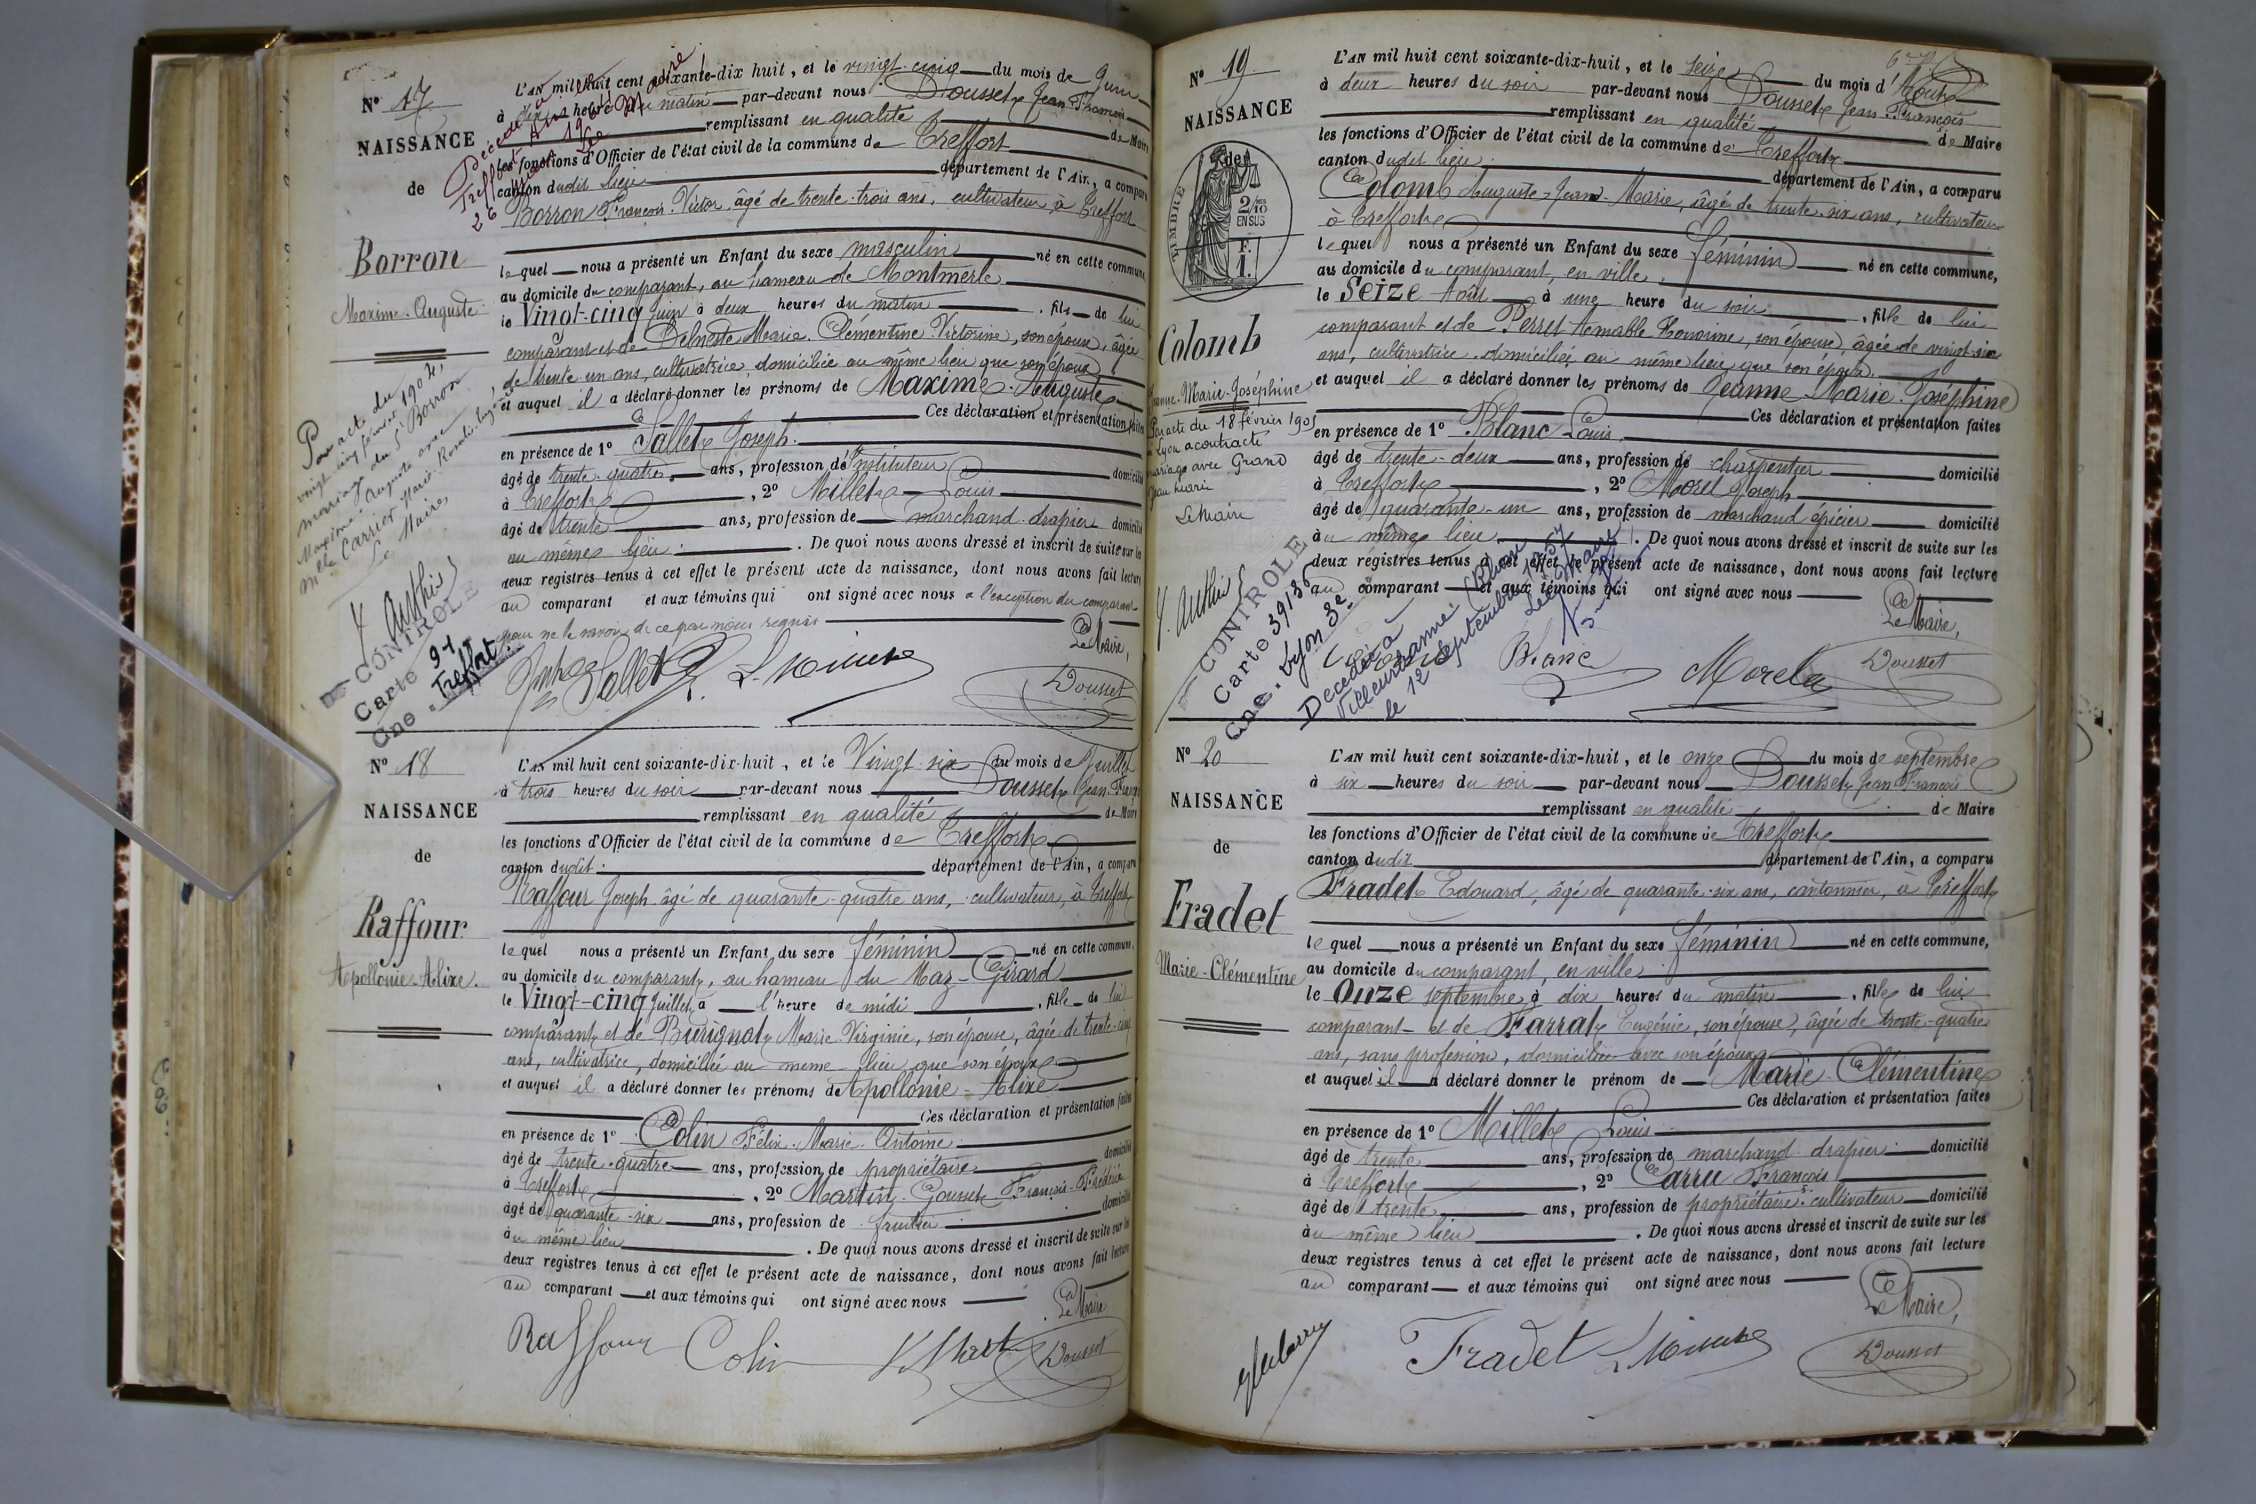 N° 17
NAISSANCE
de
Borron
Maxime-Auguste
Par acte du
vingt cinq février 1904,
mariage du Sr Borron
Maxime Auguste avec
Mlle Carrier Marie
Le Maire,
CONTROLE
Carte 94
Cne Treffort
L'AN mil huit cent soixante-dix huit, et le vingt-cinq du mois de Juin
à dix heures du matin par-devant nous Dousset Jean-François
remplissant en qualité de Maire
les fonctions d'Officier de l'état civil de la commune de Treffort
canton dudit lieu département de l'Ain, a comparu
Borron François Victor, âgé de trente-trois ans, cultivateur à Treffort
lequel nous a présenté un Enfant du sexe masculin né en cette commune
au domicile du comparant, au hameau de Montmerle
le Vingt-cinq Juin à deux heures du matin, fils de lui
comparant et de Marie Clémentine Victorine, son épouse, âgée
de trente un ans, cultivatrice, domiciliée au même lieu que son époux,
et auquel il a déclaré donner les prénoms de Maxime-Auguste
Ces déclaration et présentation faites
en présence de 1° Sallet Joseph
âgé de trente-quatre ans, profession d'Instituteur domicilié
à Treffort, 2° Millet Louis
âgé de trente ans, profession de marchand-drapier domicilié
au même lieu. De quoi nous avons dressé et inscrit de suite sur les
deux registres tenus à cet effet le présent acte de naissance, dont nous avons fait lecture
au comparant et aux témoins qui ont signé avec nous à l'exception du comparant
pour ne le savoir de ce par nous requis
Le Maire,
Sallet L. Millet Dousset
N° 18
NAISSANCE
de
Raffour
Apollonie-Alixe.
L'AN mil huit cent soixante-dix-huit, et le Vingt-six du mois de Juillet
à trois heures du soir par-devant nous Dousset Jean-François
remplissant en qualité de Maire
les fonctions d'Officier de l'état civil de la commune de Treffort
canton dudit département de l'Ain, a comparu
Raffour Joseph âgé de quarante-quatre ans, cultivateur, à Treffort
lequel nous a présenté un Enfant du sexe féminin né en cette commune,
au domicile du comparant, au hameau du Maz-Girard
le Vingt-cinq Juillet à l'heure de midi, fille de lui
comparant et de Burignat Marie Virginie, son épouse, âgée de trente-cinq
ans, cultivatrice, domiciliée au même lieu que son époux
et auquel il a déclaré donner les prénoms d'Apollonie-Alixe
Ces déclaration et présentation faites
en présence de 1° Colin Félix-Marie-Antoine
âgé de trente-quatre ans, profession de propriétaire domicilié
à Treffort, 2° Martin-Gousset François-Frédéric
âgé de quarante-six ans, profession de fruitier domicilié
au même lieu. De quoi nous avons dressé et inscrit de suite sur les
deux registres tenus à cet effet le présent acte de naissance, dont nous avons fait lecture
au comparant et aux témoins qui ont signé avec nous
Le Maire
Raffour Colin Dousset
N° 19
NAISSANCE
de
TIMBRE
2/10 EN SUS
F.
1.
Colomb
Jeanne-Marie-Joséphine
Par acte du 18 février 1905
Lyon a contracté
mariage avec Grand
Jean Marie
Le Maire
CONTROLE
Carte 39136
Cne. Lyon 3e
Décédée à
Villeurbanne (Rhône)
le 12 Septembre 1957
Le Maire
L'AN mil huit cent soixante-dix-huit, et le seize du mois d'Août
à deux heures du soir par-devant nous Dousset Jean François
remplissant en qualité de Maire
les fonctions d'Officier de l'état civil de la commune de Treffort
canton dudit lieu. département de l'Ain, a comparu
Colomb Auguste-Jean-Marie, âgé de trente-six ans, cultivateur
à Treffort
lequel nous a présenté un Enfant du sexe féminin né en cette commune,
au domicile du comparant, en ville,
le Seize Août à une heure du soir, fille de lui
comparant et de Perret Aemable Honorine, son épouse, âgée de vingt-six
ans, cultivatrice, domiciliée au même lieu que son époux.
et auquel il a déclaré donner les prénoms de Jeanne-Marie-Joséphine
Ces déclaration et présentation faites
en présence de 1° Blanc Louis
âgé de trente-deux ans, profession de charpentier domicilié
à Treffort, 2° Morel Joseph
âgé de quarante-un ans, profession de marchand épicier domicilié
au même lieu. De quoi nous avons dressé et inscrit de suite sur les
deux registres tenus à cet effet le présent acte de naissance, dont nous avons fait lecture
au comparant et aux témoins qui ont signé avec nous
Le Maire,
Blanc Morel Dousset
N° 20
NAISSANCE
de
Fradet
Marie-Clémentine
L'AN mil huit cent soixante-dix-huit, et le onze du mois de septembre
à six heures du soir par-devant nous Dousset Jean François
remplissant en qualité de Maire
les fonctions d'Officier de l'état civil de la commune de Treffort
canton dudit département de l'Ain, a comparu
Fradet Edouard, âgé de quarante-six ans, cantonnier, à Treffort
lequel nous a présenté un Enfant du sexe féminin né en cette commune,
au domicile du comparant, en ville
le Onze septembre à dix heures du matin, fille de lui
comparant et de Farrat Eugénie, son épouse, âgée de trente-quatre
ans, sans profession, domiciliée avec son époux
et auquel il a déclaré donner le prénom de Marie-Clémentine
Ces déclaration et présentation faites
en présence de 1° Millet Louis
âgé de trente ans, profession de marchand drapier domicilié
à Treffort, 2° Carru François
âgé de trente ans, profession de propriétaire-cultivateur domicilié
au même lieu. De quoi nous avons dressé et inscrit de suite sur les
deux registres tenus à cet effet le présent acte de naissance, dont nous avons fait lecture
au comparant et aux témoins qui ont signé avec nous
Le Maire,
Fradet L Millet Dousset